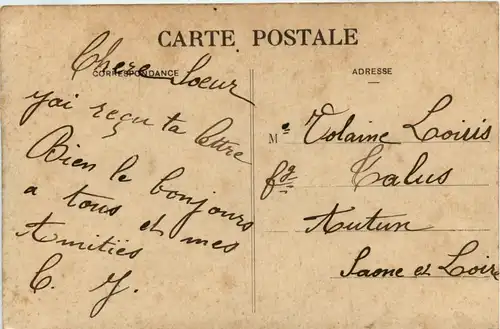 CARTE POSTALE
CORRESPONDANCE
Chere Soeur
j'ai reçu ta lettre
Bien le bonjours
a tous et mes
Amitiés
C. J.
ADRESSE
Me Volaine Loisis
fg Talus
Autun
Saone et Loire